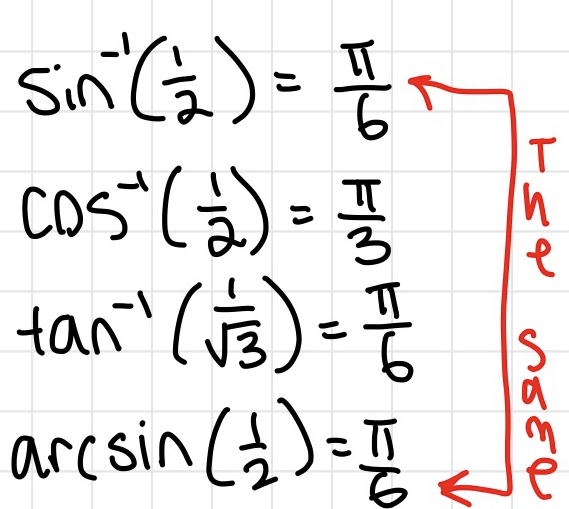 sin⁻¹(1/2) = π/6
cos⁻¹(1/2) = π/3
tan⁻¹(1/√3) = π/6
arcsin(1/2) = π/6
The same